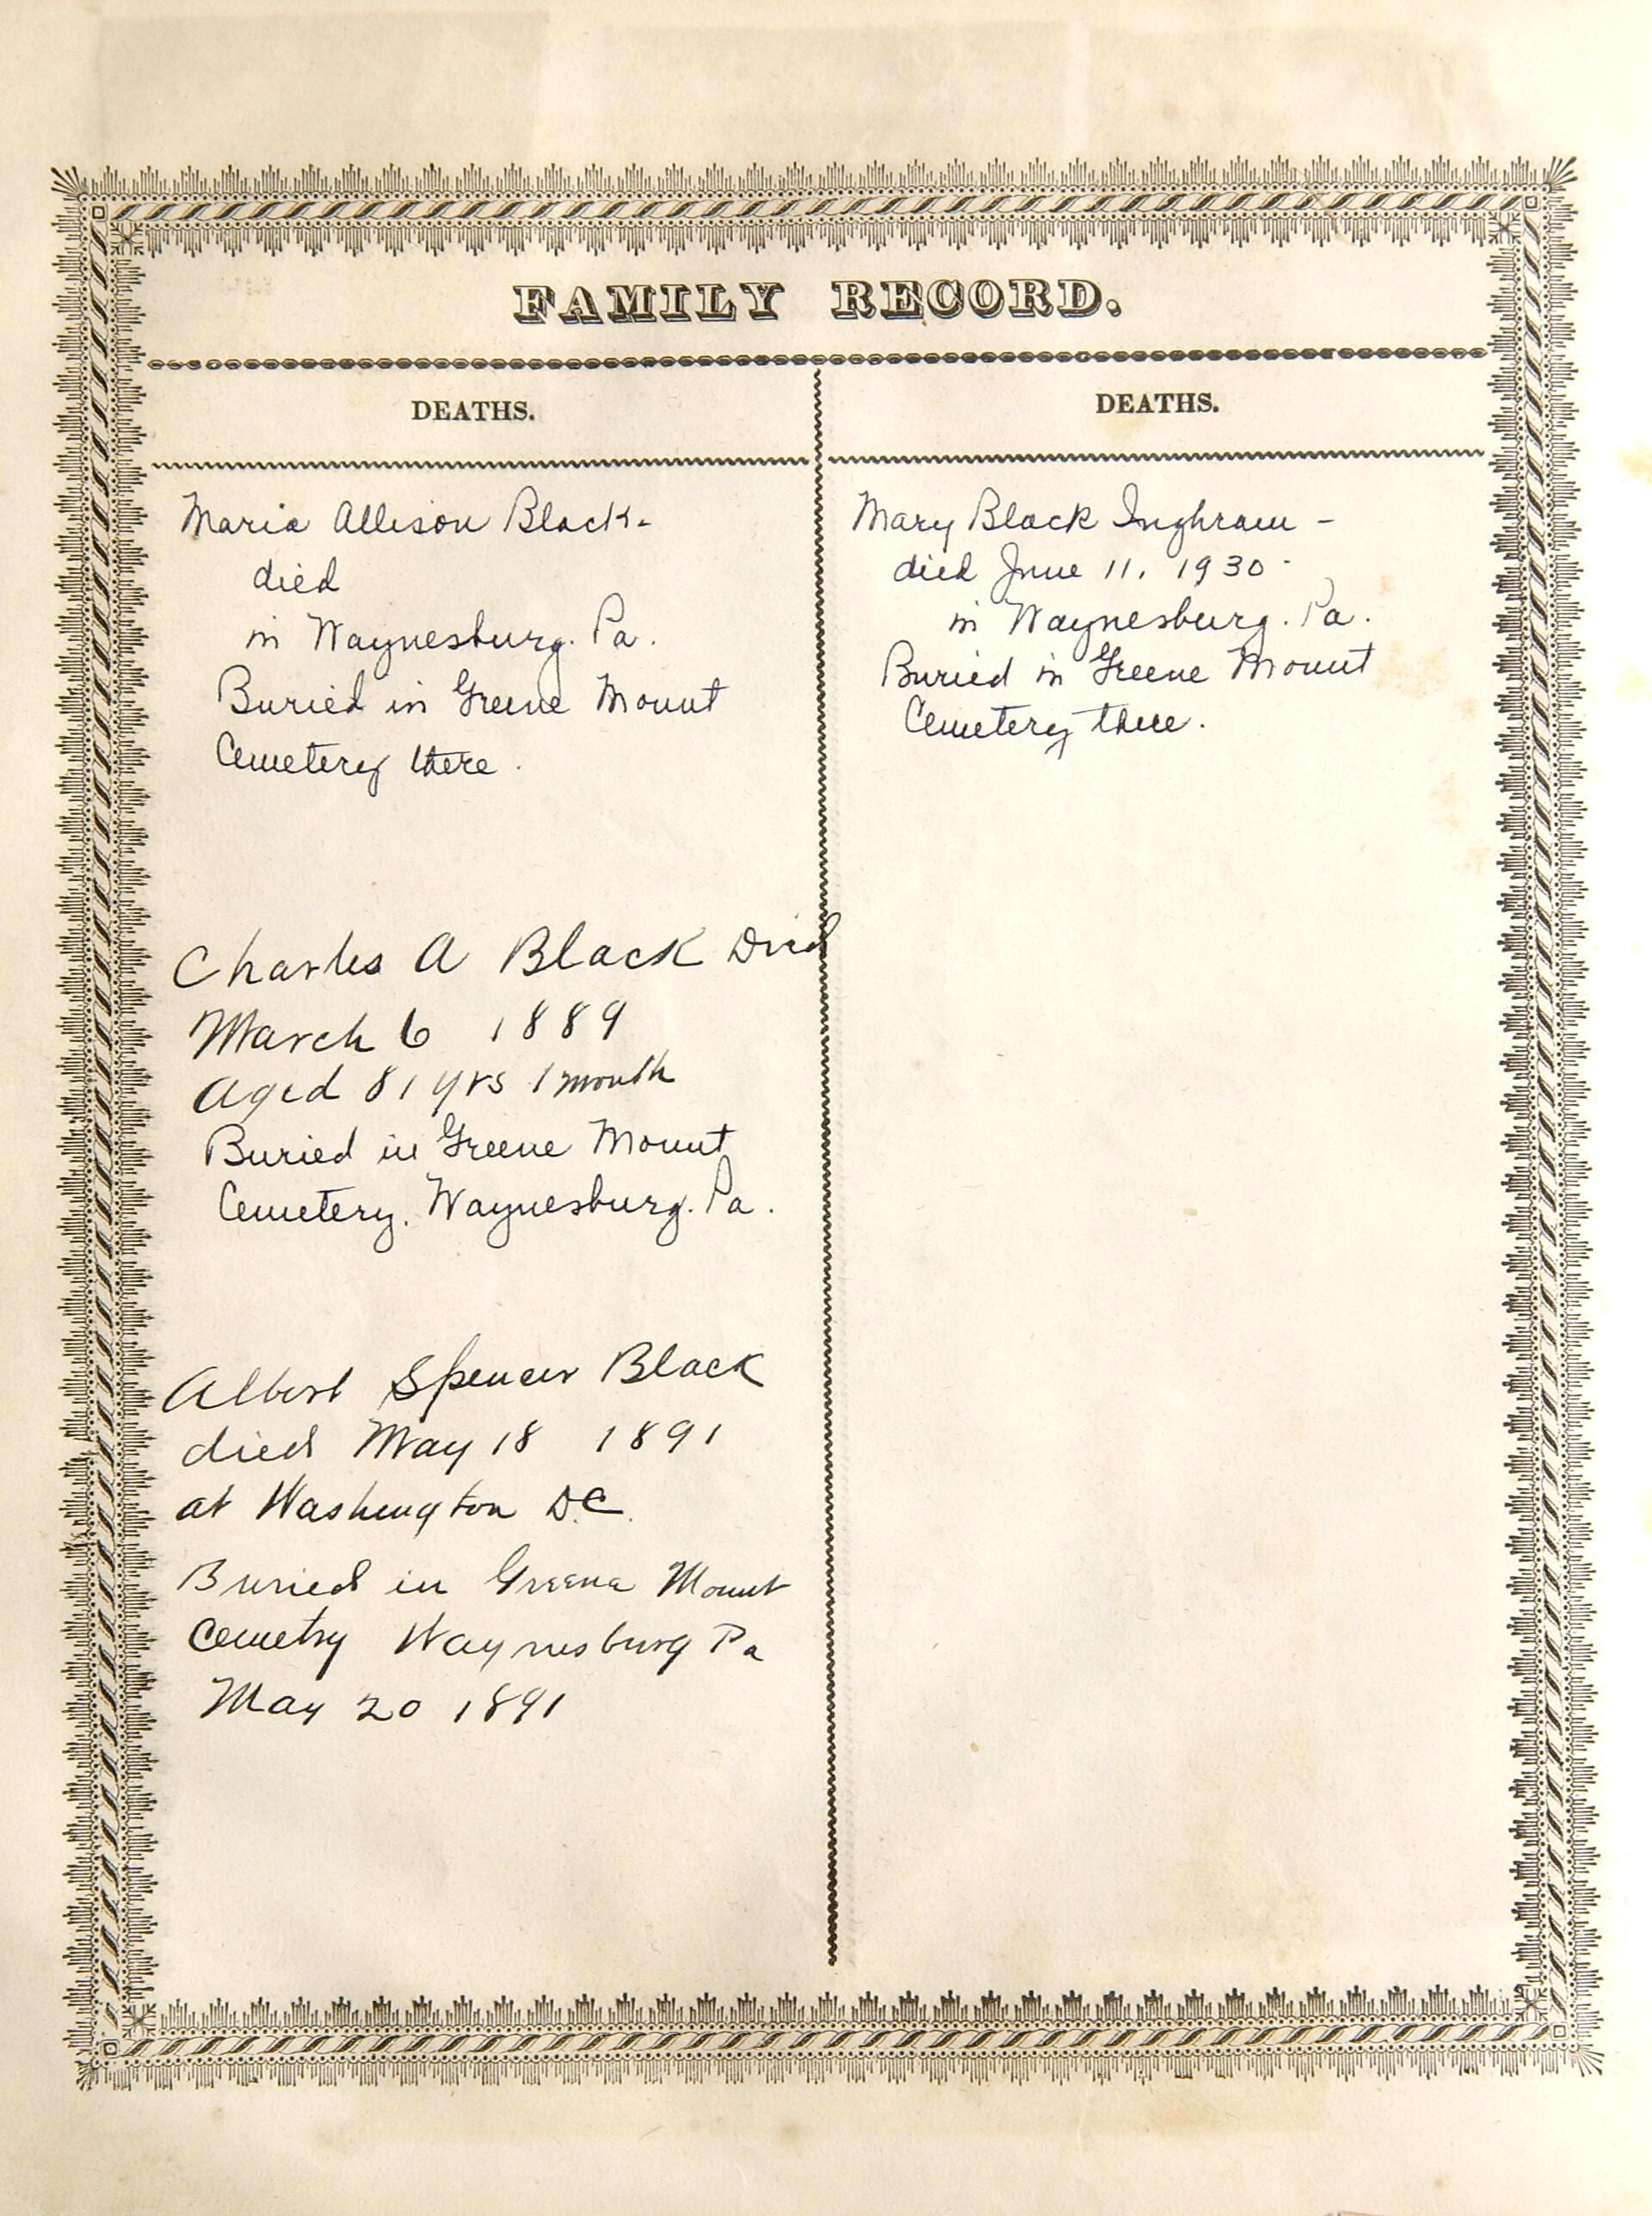 FAMILY RECORD.
DEATHS.
Maria Allison Black-
died
in Waynesburg. Pa.
Buried in Greene Mount
Cemetery there.
Charles A Black Died
March 6 1889
Aged 81 yrs 1 month
Buried in Greene Mount
Cemetery. Waynesburg. Pa.
Albert Spencer Black
died May 18 1891
at Washington D.C.
Buried in Greene Mount
Cemetry Waynesburg Pa
May 20 1891
DEATHS.
Mary Black Inghram -
died June 11. 1930 -
in Waynesburg. Pa.
Buried in Greene Mount
Cemetery there.